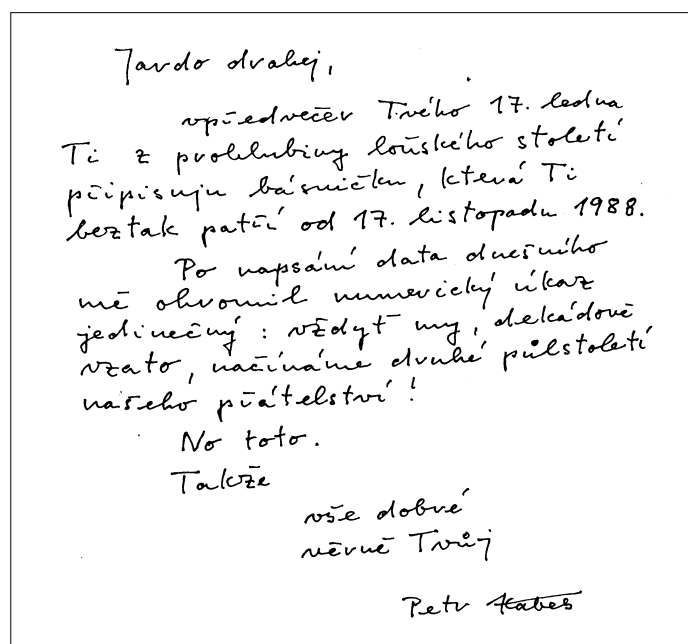 Jardo drahej,
vpředvečer Tvého 17. ledna
Ti z prohlubiny loňského století
připisuju básničku, která Ti
beztak patří od 17. listopadu 1988.
Po napsání data dnešního
mě ohromil numerický úkaz
jedinečný: vždyť my, dekádově
vzato, načínáme druhé půlstoletí
našeho přátelství!
No toto.
Takže
vše dobré
věrně Tvůj
Petr Kabeš